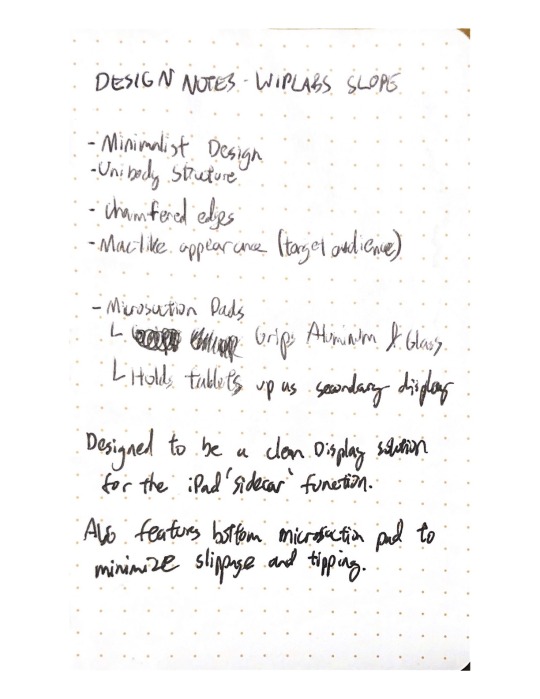 DESIGN NOTES - WIPLABS SLOPE
- Minimalist Design
- Unibody Structure
- Chamfered edges
- Mac-like appearance (target audience)
- Microsuction Pads
Grips Aluminum & Glass
Holds tablets up as secondary display
Designed to be a clean Display solution
for the iPad 'sidecar' function.
Also features bottom microsuction pad to
minimize slippage and tipping.